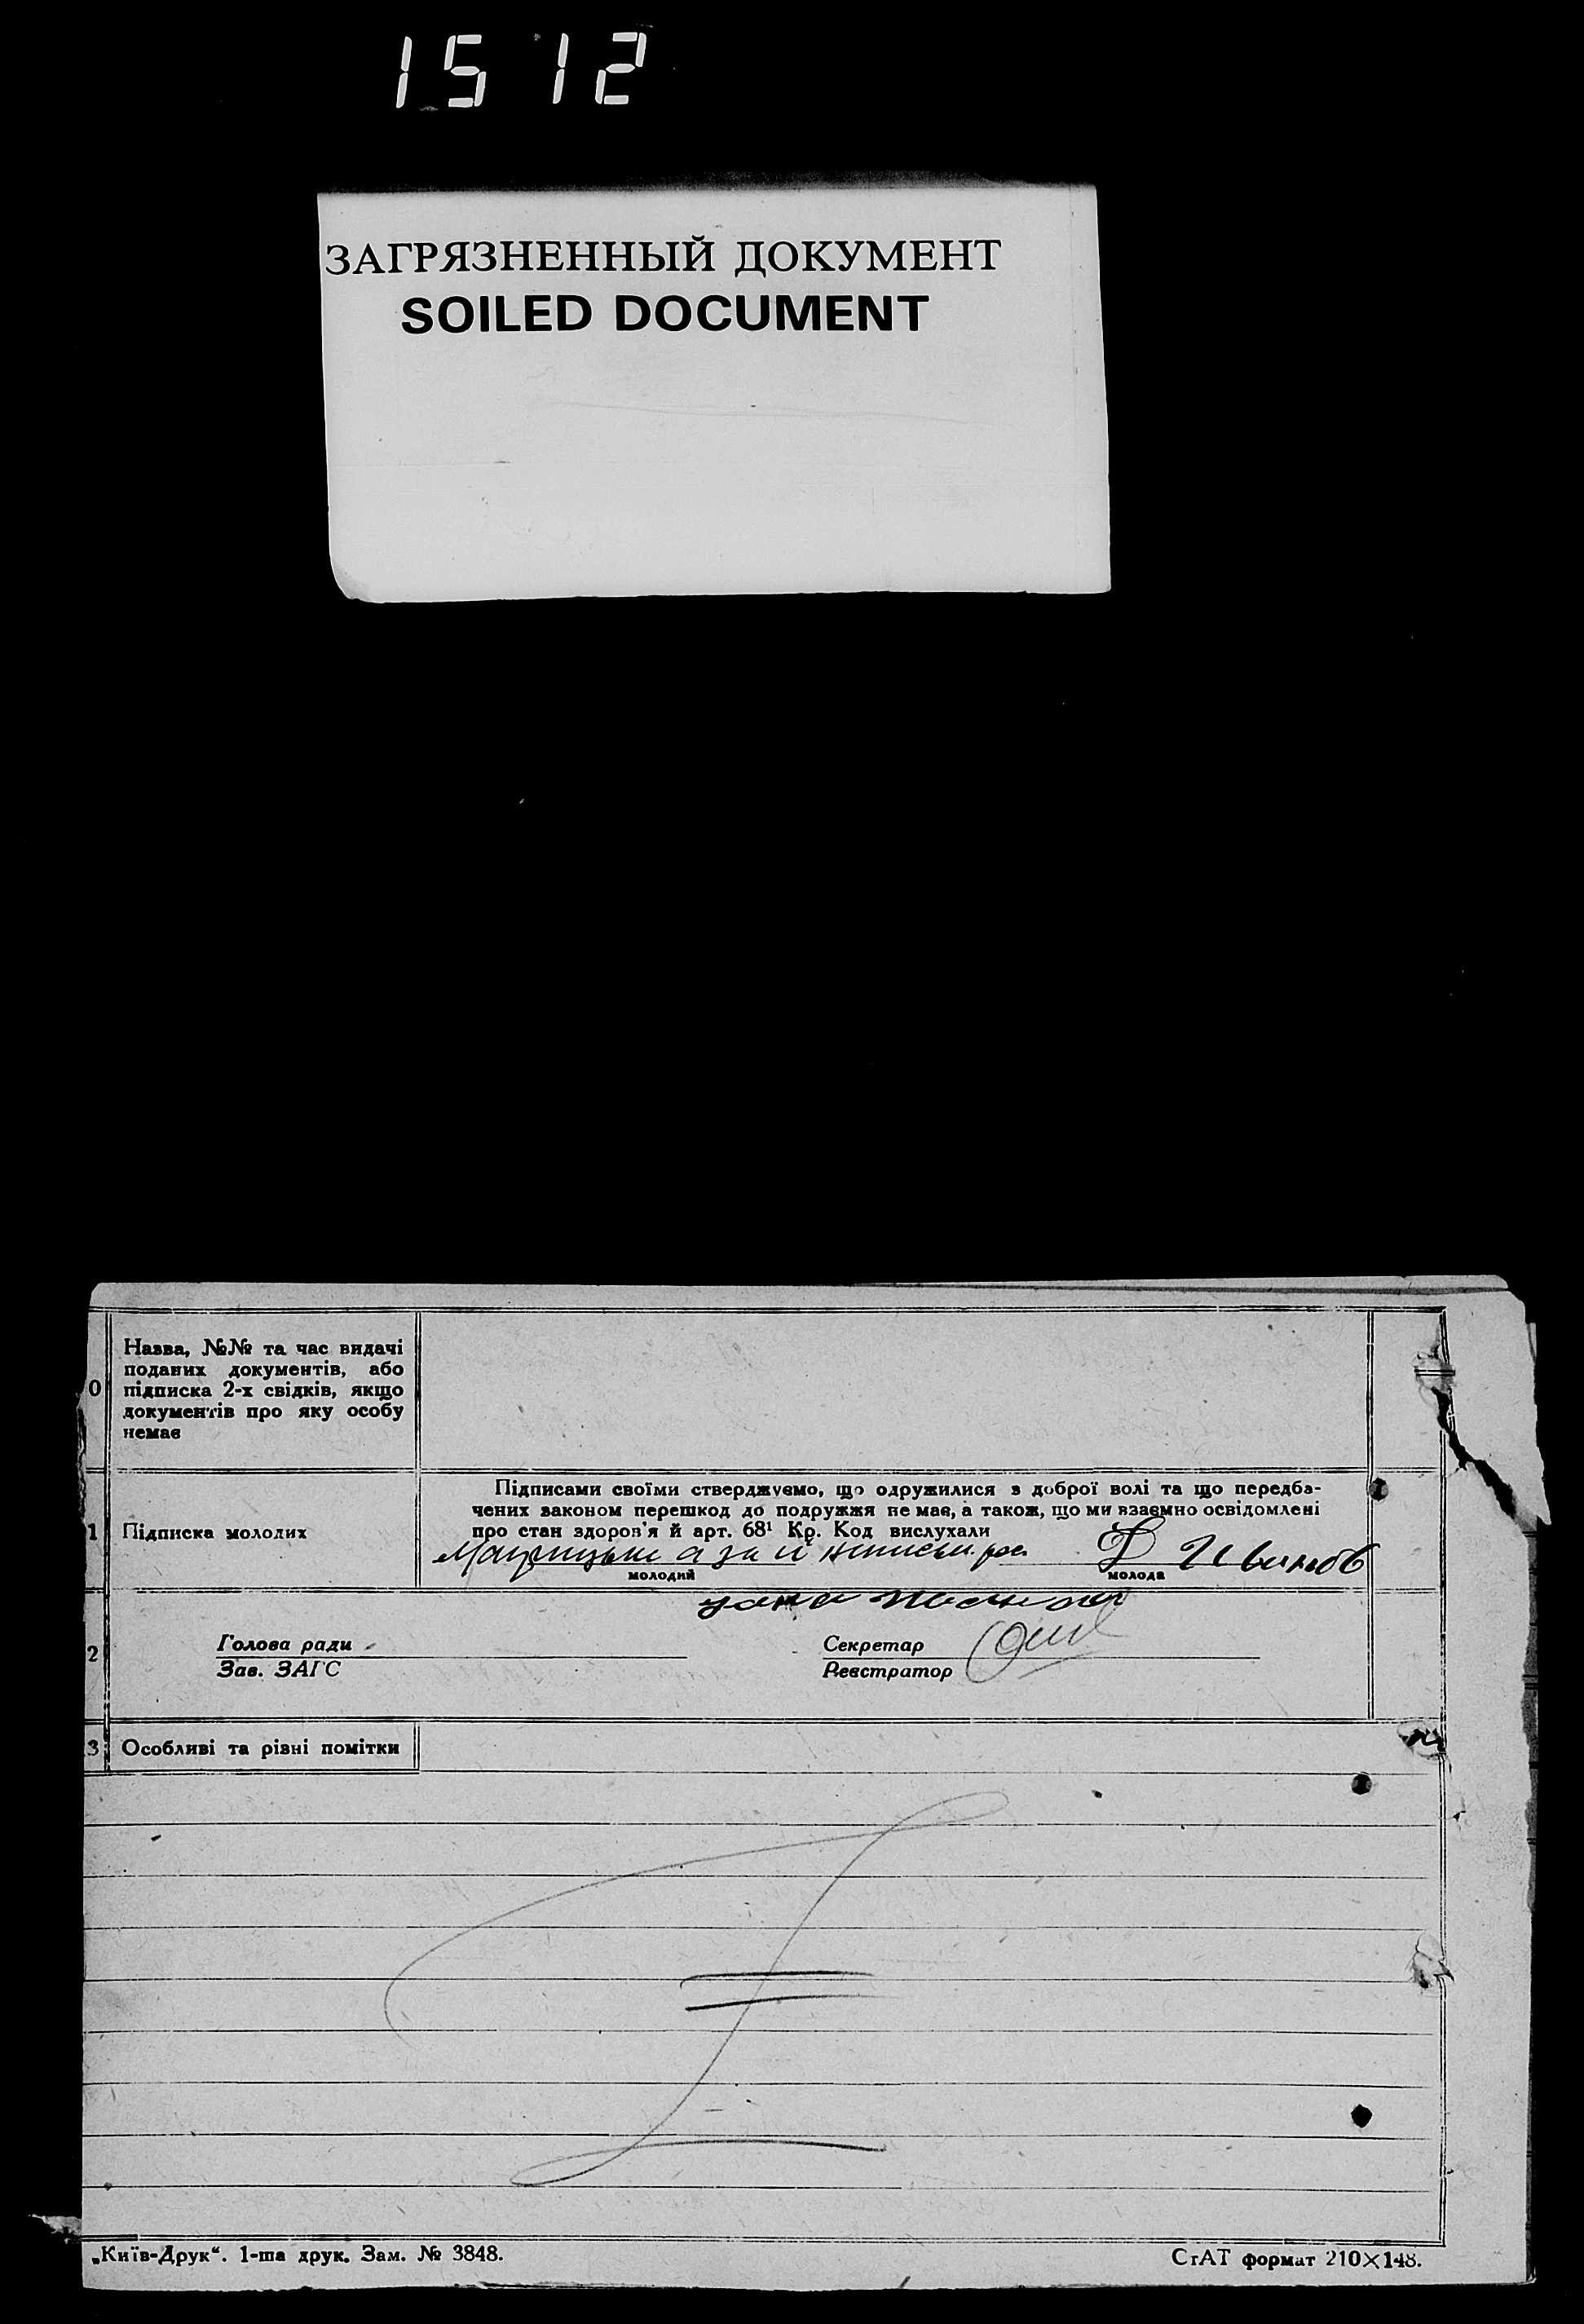 1512
ЗАГРЯЗНЕННЫЙ ДОКУМЕНТ
SOILED DOCUMENT
0
Назва, №№ та час видачі
поданих документів, або
підписка 2-х свідків, якщо
документів про яку особу
немає
1
Підписка молодих
Підписами своїми стверджуємо, що одружилися з доброї волі та що передба-
чених законом перешкод до подружжя не має, а також, що ми взаємно освідомлені
про стан здоров'я й арт. 68¹ Кр. Код вислухали
молодий
молода
2
Голова ради
Зав. ЗАГС
Секретар
Реєстратор
3
Особливі та рівні помітки
„Київ-Друк“. 1-ша друк. Зам. № 3848.
СтАТ формат 210×148.